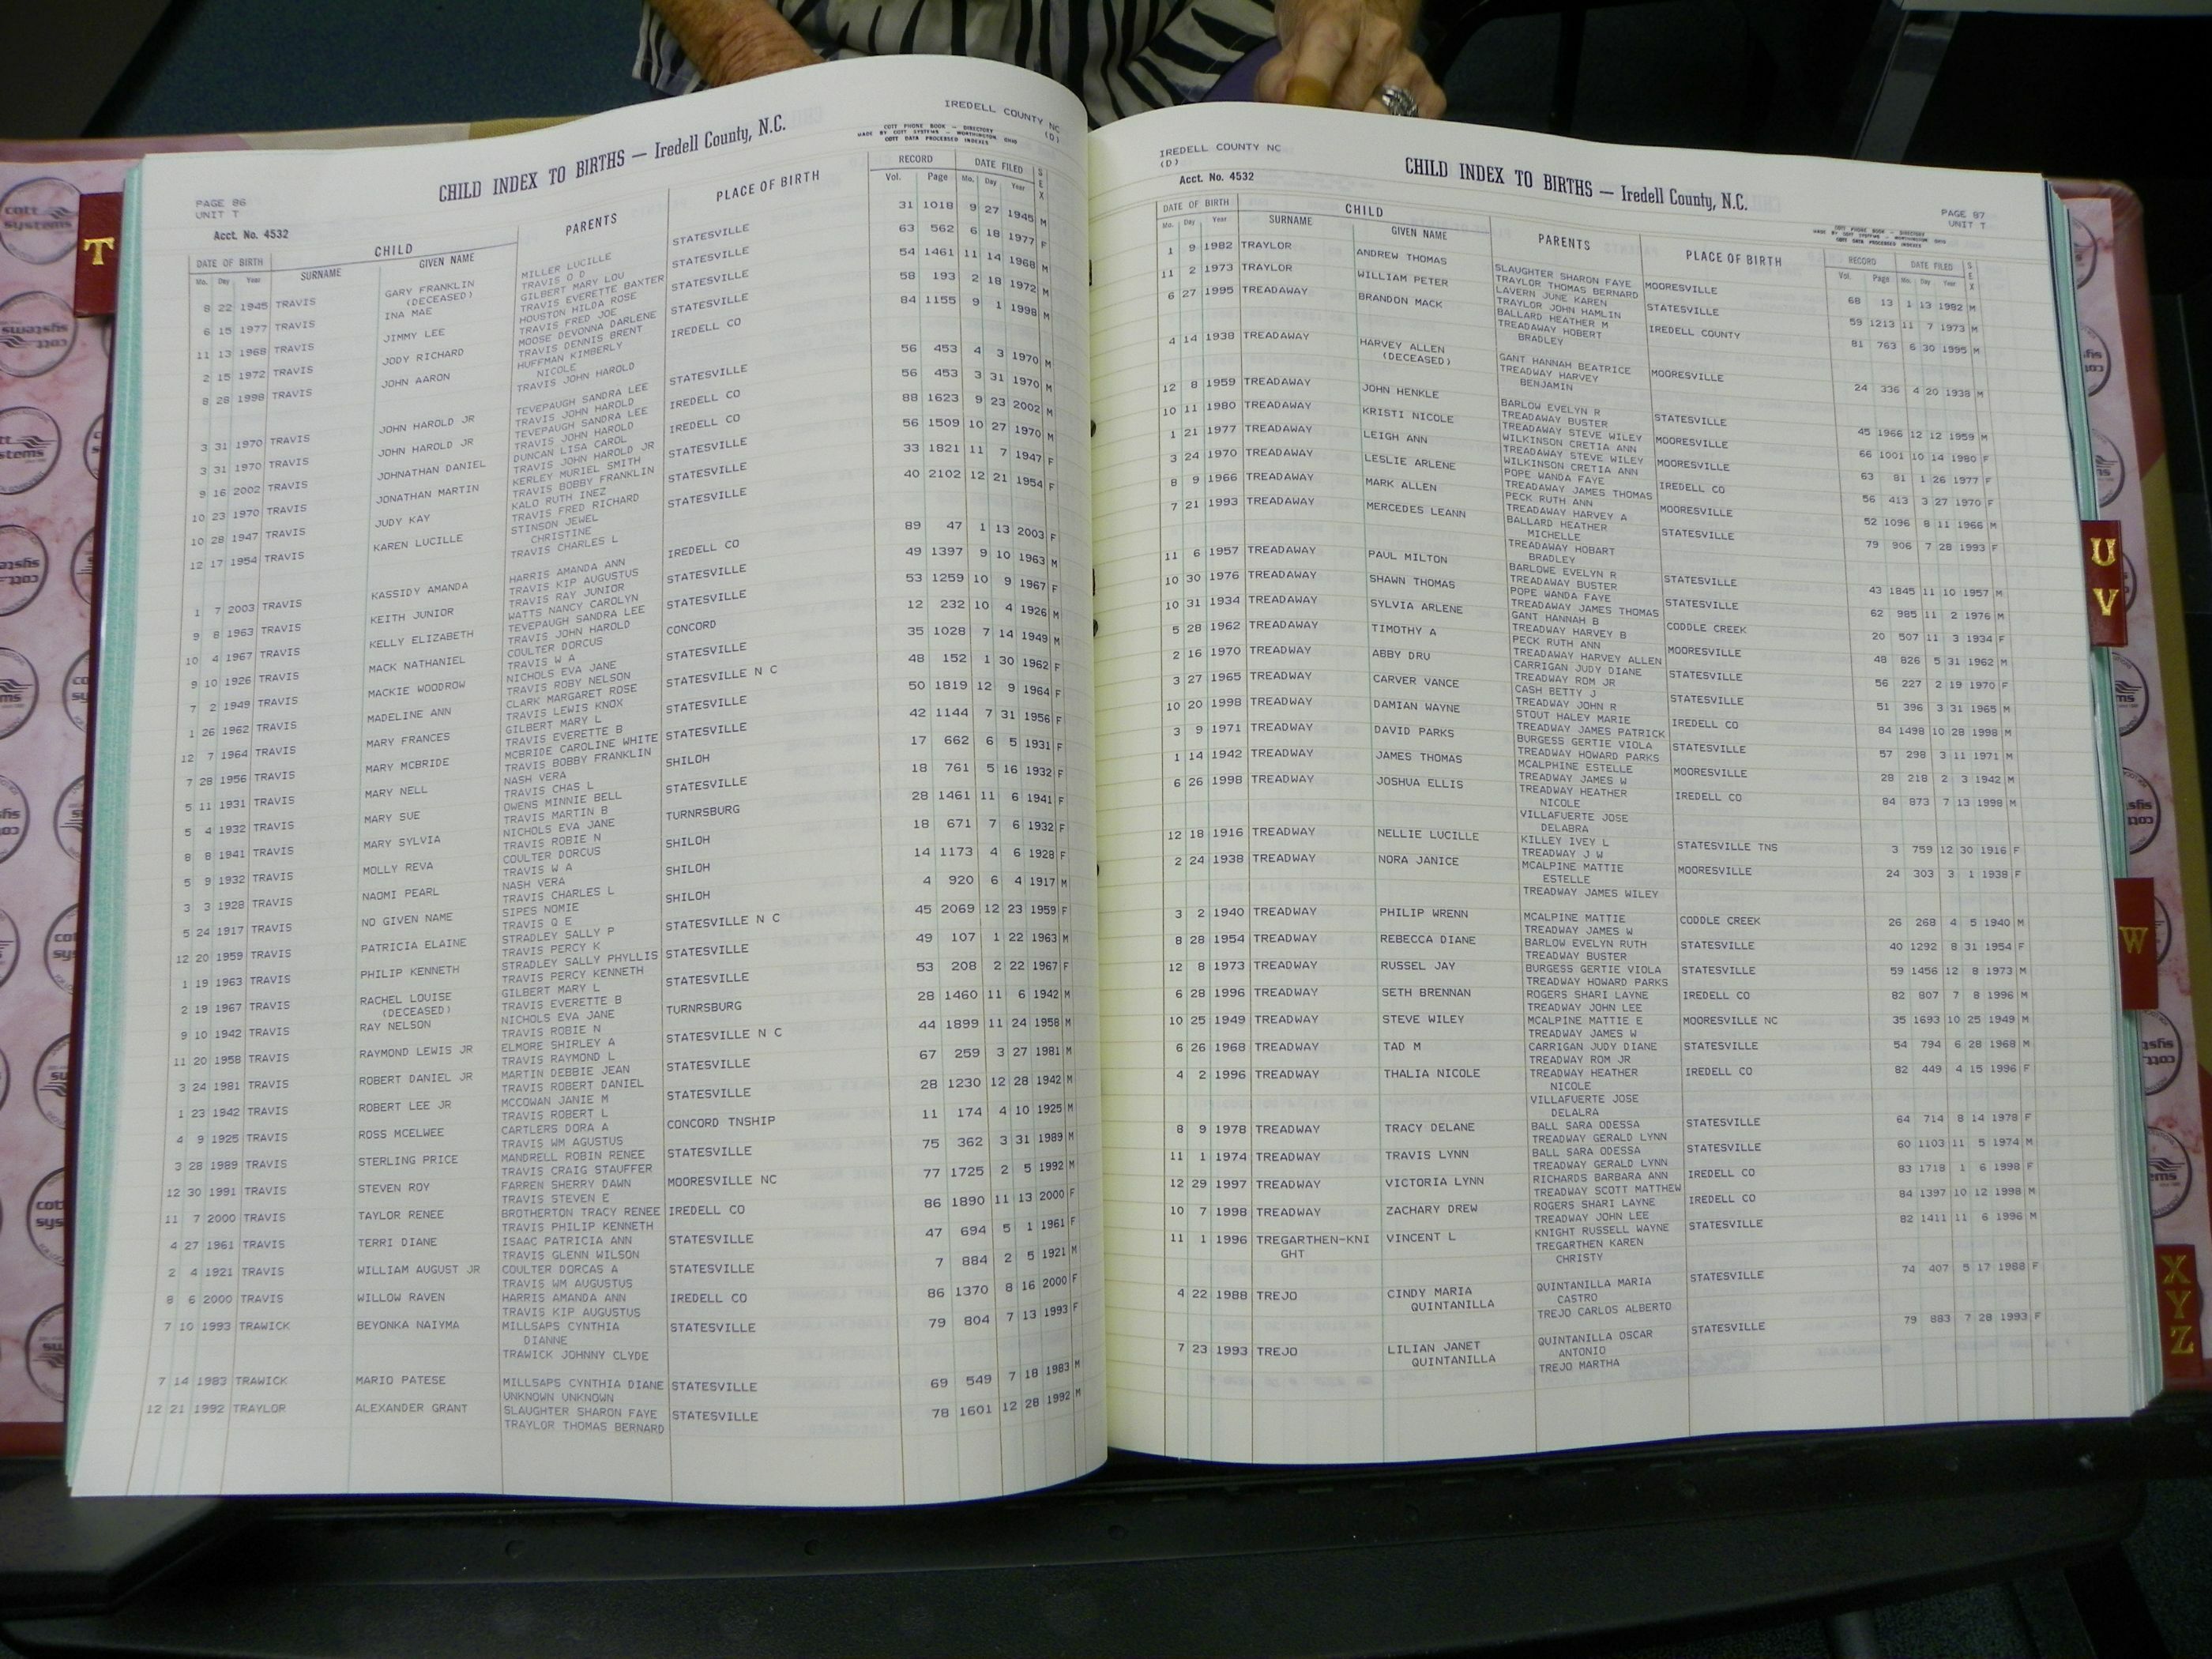 IREDELL COUNTY NC
(D)
CHILD INDEX TO BIRTHS — Iredell County, N.C.
COTT PHONE BOOK — DIRECTORY
MADE BY COTT SYSTEMS — WORTHINGTON, OHIO
COTT DATA PROCESSED INDEXES
PAGE 86
UNIT T
Acct. No. 4532
DATE OF BIRTH CHILD PARENTS PLACE OF BIRTH RECORD DATE FILED SEX
Mo. Day Year SURNAME GIVEN NAME Vol. Page Mo. Day Year
8 22 1945 TRAVIS GARY FRANKLIN MILLER LUCILLE STATESVILLE 31 1018 9 27 1945 M
(DECEASED) TRAVIS O D
6 15 1977 TRAVIS INA MAE GILBERT MARY LOU STATESVILLE 63 562 6 18 1977 F
TRAVIS EVERETTE BAXTER
11 13 1968 TRAVIS JIMMY LEE HOUSTON HILDA ROSE STATESVILLE 54 1461 11 14 1968 M
TRAVIS FRED JOE
2 15 1972 TRAVIS JODY RICHARD MOOSE DEVONNA DARLENE STATESVILLE 58 193 2 18 1972 M
TRAVIS DENNIS BRENT
8 28 1998 TRAVIS JOHN AARON HUFFMAN KIMBERLY IREDELL CO 84 1155 9 1 1998 M
NICOLE
TRAVIS JOHN HAROLD
3 31 1970 TRAVIS JOHN HAROLD JR TEVEPAUGH SANDRA LEE STATESVILLE 56 453 4 3 1970 M
TRAVIS JOHN HAROLD
3 31 1970 TRAVIS JOHN HAROLD JR TEVEPAUGH SANDRA LEE IREDELL CO 56 453 3 31 1970 M
TRAVIS JOHN HAROLD
9 16 2002 TRAVIS JOHNATHAN DANIEL DUNCAN LISA CAROL IREDELL CO 88 1623 9 23 2002 M
TRAVIS JOHN HAROLD JR
10 23 1970 TRAVIS JONATHAN MARTIN KERLEY MURIEL SMITH STATESVILLE 56 1509 10 27 1970 M
TRAVIS BOBBY FRANKLIN
10 28 1947 TRAVIS JUDY KAY KALO RUTH INEZ STATESVILLE 33 1821 11 7 1947 F
TRAVIS FRED RICHARD
12 17 1954 TRAVIS KAREN LUCILLE STINSON JEWEL STATESVILLE 40 2102 12 21 1954 F
CHRISTINE
TRAVIS CHARLES L
1 7 2003 TRAVIS KASSIDY AMANDA HARRIS AMANDA ANN IREDELL CO 89 47 1 13 2003 F
TRAVIS KIP AUGUSTUS
9 8 1963 TRAVIS KEITH JUNIOR TRAVIS RAY JUNIOR STATESVILLE 49 1397 9 10 1963 M
WATTS NANCY CAROLYN
10 4 1967 TRAVIS KELLY ELIZABETH TEVEPAUGH SANDRA LEE STATESVILLE 53 1259 10 9 1967 F
TRAVIS JOHN HAROLD
9 10 1926 TRAVIS MACK NATHANIEL COULTER DORCUS CONCORD 12 232 10 4 1926 M
TRAVIS W A
7 2 1949 TRAVIS MACKIE WOODROW NICHOLS EVA JANE STATESVILLE 35 1028 7 14 1949 M
TRAVIS ROBY NELSON
1 26 1962 TRAVIS MADELINE ANN CLARK MARGARET ROSE STATESVILLE N C 48 152 1 30 1962 F
TRAVIS LEWIS KNOX
12 7 1964 TRAVIS MARY FRANCES GILBERT MARY L STATESVILLE 50 1819 12 9 1964 F
TRAVIS EVERETTE B
7 28 1956 TRAVIS MARY MCBRIDE MCBRIDE CAROLINE WHITE STATESVILLE 42 1144 7 31 1956 F
TRAVIS BOBBY FRANKLIN
5 11 1931 TRAVIS MARY NELL NASH VERA SHILOH 17 662 6 5 1931 F
TRAVIS CHAS L
5 4 1932 TRAVIS MARY SUE OWENS MINNIE BELL STATESVILLE 18 761 5 16 1932 F
TRAVIS MARTIN B
8 8 1941 TRAVIS MARY SYLVIA NICHOLS EVA JANE TURNRSBURG 28 1461 11 6 1941 F
TRAVIS ROBIE N
5 9 1932 TRAVIS MOLLY REVA COULTER DORCUS SHILOH 18 671 7 6 1932 F
TRAVIS W A
3 3 1928 TRAVIS NAOMI PEARL NASH VERA SHILOH 14 1173 4 6 1928 F
TRAVIS CHARLES L
5 24 1917 TRAVIS NO GIVEN NAME SIPES NOMIE SHILOH 4 920 6 4 1917 M
TRAVIS Q E
12 20 1959 TRAVIS PATRICIA ELAINE STRADLEY SALLY P STATESVILLE N C 45 2069 12 23 1959 F
TRAVIS PERCY K
1 19 1963 TRAVIS PHILIP KENNETH STRADLEY SALLY PHYLLIS STATESVILLE 49 107 1 22 1963 M
TRAVIS PERCY KENNETH
2 19 1967 TRAVIS RACHEL LOUISE GILBERT MARY L STATESVILLE 53 208 2 22 1967 F
(DECEASED) TRAVIS EVERETTE B
9 10 1942 TRAVIS RAY NELSON NICHOLS EVA JANE TURNRSBURG 28 1460 11 6 1942 M
TRAVIS ROBIE N
11 20 1958 TRAVIS RAYMOND LEWIS JR ELMORE SHIRLEY A STATESVILLE N C 44 1899 11 24 1958 M
TRAVIS RAYMOND L
3 24 1981 TRAVIS ROBERT DANIEL JR MARTIN DEBBIE JEAN STATESVILLE 67 259 3 27 1981 M
TRAVIS ROBERT DANIEL
1 23 1942 TRAVIS ROBERT LEE JR MCCOWAN JANIE M STATESVILLE 28 1230 12 28 1942 M
TRAVIS ROBERT L
4 9 1925 TRAVIS ROSS MCELWEE CARTLERS DORA A CONCORD TNSHIP 11 174 4 10 1925 M
TRAVIS WM AGUSTUS
3 28 1989 TRAVIS STERLING PRICE MANDRELL ROBIN RENEE STATESVILLE 75 362 3 31 1989 M
TRAVIS CRAIG STAUFFER
12 30 1991 TRAVIS STEVEN ROY FARREN SHERRY DAWN MOORESVILLE NC 77 1725 2 5 1992 M
TRAVIS STEVEN E
11 7 2000 TRAVIS TAYLOR RENEE BROTHERTON TRACY RENEE IREDELL CO 86 1890 11 13 2000 F
TRAVIS PHILIP KENNETH
4 27 1961 TRAVIS TERRI DIANE ISAAC PATRICIA ANN STATESVILLE 47 694 5 1 1961 F
TRAVIS GLENN WILSON
2 4 1921 TRAVIS WILLIAM AUGUST JR COULTER DORCAS A STATESVILLE 7 884 2 5 1921 M
TRAVIS WM AUGUSTUS
8 6 2000 TRAVIS WILLOW RAVEN HARRIS AMANDA ANN IREDELL CO 86 1370 8 16 2000 F
TRAVIS KIP AUGUSTUS
7 10 1993 TRAWICK BEYONKA NAIYMA MILLSAPS CYNTHIA STATESVILLE 79 804 7 13 1993 F
DIANNE
TRAWICK JOHNNY CLYDE
7 14 1983 TRAWICK MARIO PATESE MILLSAPS CYNTHIA DIANE STATESVILLE 69 549 7 18 1983 M
UNKNOWN UNKNOWN
12 21 1992 TRAYLOR ALEXANDER GRANT SLAUGHTER SHARON FAYE STATESVILLE 78 1601 12 28 1992 M
TRAYLOR THOMAS BERNARD
IREDELL COUNTY NC
(D)
Acct. No. 4532
CHILD INDEX TO BIRTHS — Iredell County, N.C.
PAGE 87
UNIT T
COTT PHONE BOOK — DIRECTORY
MADE BY COTT SYSTEMS — WORTHINGTON, OHIO
COTT DATA PROCESSED INDEXES
DATE OF BIRTH CHILD PARENTS PLACE OF BIRTH RECORD DATE FILED SEX
Mo. Day Year SURNAME GIVEN NAME Vol. Page Mo. Day Year
1 9 1982 TRAYLOR ANDREW THOMAS SLAUGHTER SHARON FAYE MOORESVILLE 68 13 1 13 1982 M
TRAYLOR THOMAS BERNARD
11 2 1973 TRAYLOR WILLIAM PETER LAVERN JUNE KAREN STATESVILLE 59 1213 11 7 1973 M
TRAYLOR JOHN HAMLIN
6 27 1995 TREADAWAY BRANDON MACK BALLARD HEATHER M IREDELL COUNTY 81 763 6 30 1995 M
TREADAWAY HOBERT
BRADLEY
4 14 1938 TREADAWAY HARVEY ALLEN GANT HANNAH BEATRICE MOORESVILLE 24 336 4 20 1938 M
(DECEASED) TREADWAY HARVEY
BENJAMIN
12 8 1959 TREADAWAY JOHN HENKLE BARLOW EVELYN R STATESVILLE 45 1966 12 12 1959 M
TREADAWAY BUSTER
10 11 1980 TREADAWAY KRISTI NICOLE TREADAWAY STEVE WILEY MOORESVILLE 66 1001 10 14 1980 F
WILKINSON CRETIA ANN
1 21 1977 TREADAWAY LEIGH ANN TREADAWAY STEVE WILEY MOORESVILLE 63 81 1 26 1977 F
WILKINSON CRETIA ANN
3 24 1970 TREADAWAY LESLIE ARLENE POPE WANDA FAYE IREDELL CO 56 413 3 27 1970 F
TREADAWAY JAMES THOMAS
8 9 1966 TREADAWAY MARK ALLEN PECK RUTH ANN MOORESVILLE 52 1096 8 11 1966 M
TREADAWAY HARVEY A
7 21 1993 TREADAWAY MERCEDES LEANN BALLARD HEATHER STATESVILLE 79 906 7 28 1993 F
MICHELLE
TREADAWAY HOBART
BRADLEY
11 6 1957 TREADAWAY PAUL MILTON BARLOWE EVELYN R STATESVILLE 43 1845 11 10 1957 M
TREADAWAY BUSTER
10 30 1976 TREADAWAY SHAWN THOMAS POPE WANDA FAYE STATESVILLE 62 985 11 2 1976 M
TREADAWAY JAMES THOMAS
10 31 1934 TREADAWAY SYLVIA ARLENE GANT HANNAH B CODDLE CREEK 20 507 11 3 1934 F
TREADWAY HARVEY B
5 28 1962 TREADAWAY TIMOTHY A PECK RUTH ANN MOORESVILLE 48 826 5 31 1962 M
TREADAWAY HARVEY ALLEN
2 16 1970 TREADWAY ABBY DRU CARRIGAN JUDY DIANE STATESVILLE 56 227 2 19 1970 F
TREADWAY ROM JR
3 27 1965 TREADWAY CARVER VANCE CASH BETTY J STATESVILLE 51 396 3 31 1965 M
TREADWAY JOHN R
10 20 1998 TREADWAY DAMIAN WAYNE STOUT HALEY MARIE IREDELL CO 84 1498 10 28 1998 M
TREADWAY JAMES PATRICK
3 9 1971 TREADWAY DAVID PARKS BURGESS GERTIE VIOLA STATESVILLE 57 298 3 11 1971 M
TREADWAY HOWARD PARKS
1 14 1942 TREADWAY JAMES THOMAS MCALPHINE ESTELLE MOORESVILLE 28 218 2 3 1942 M
TREADWAY JAMES W
6 26 1998 TREADWAY JOSHUA ELLIS TREADWAY HEATHER IREDELL CO 84 873 7 13 1998 M
NICOLE
VILLAFUERTE JOSE
DELABRA
12 18 1916 TREADWAY NELLIE LUCILLE KILLEY IVEY L STATESVILLE TNS 3 759 12 30 1916 F
TREADWAY J W
2 24 1938 TREADWAY NORA JANICE MCALPINE MATTIE MOORESVILLE 24 303 3 1 1938 F
ESTELLE
TREADWAY JAMES WILEY
3 2 1940 TREADWAY PHILIP WRENN MCALPINE MATTIE CODDLE CREEK 26 268 4 5 1940 M
TREADWAY JAMES W
8 28 1954 TREADWAY REBECCA DIANE BARLOW EVELYN RUTH STATESVILLE 40 1292 8 31 1954 F
TREADWAY BUSTER
12 8 1973 TREADWAY RUSSEL JAY BURGESS GERTIE VIOLA STATESVILLE 59 1456 12 8 1973 M
TREADWAY HOWARD PARKS
6 28 1996 TREADWAY SETH BRENNAN ROGERS SHARI LAYNE IREDELL CO 82 807 7 8 1996 M
TREADWAY JOHN LEE
10 25 1949 TREADWAY STEVE WILEY MCALPINE MATTIE E MOORESVILLE NC 35 1693 10 25 1949 M
TREADWAY JAMES W
6 26 1968 TREADWAY TAD M CARRIGAN JUDY DIANE STATESVILLE 54 794 6 28 1968 M
TREADWAY ROM JR
4 2 1996 TREADWAY THALIA NICOLE TREADWAY HEATHER IREDELL CO 82 449 4 15 1996 F
NICOLE
VILLAFUERTE JOSE
DELALRA
8 9 1978 TREADWAY TRACY DELANE BALL SARA ODESSA STATESVILLE 64 714 8 14 1978 F
TREADWAY GERALD LYNN
11 1 1974 TREADWAY TRAVIS LYNN BALL SARA ODESSA STATESVILLE 60 1103 11 5 1974 M
TREADWAY GERALD LYNN
12 29 1997 TREADWAY VICTORIA LYNN RICHARDS BARBARA ANN IREDELL CO 83 1718 1 6 1998 F
TREADWAY SCOTT MATTHEW
10 7 1998 TREADWAY ZACHARY DREW ROGERS SHARI LAYNE IREDELL CO 84 1397 10 12 1998 M
TREADWAY JOHN LEE
11 1 1996 TREGARTHEN-KNI VINCENT L KNIGHT RUSSELL WAYNE STATESVILLE 82 1411 11 6 1996 M
GHT TREGARTHEN KAREN
CHRISTY
4 22 1988 TREJO CINDY MARIA QUINTANILLA MARIA STATESVILLE 74 407 5 17 1988 F
QUINTANILLA CASTRO
TREJO CARLOS ALBERTO
7 23 1993 TREJO LILIAN JANET QUINTANILLA OSCAR STATESVILLE 79 883 7 28 1993 F
QUINTANILLA ANTONIO
TREJO MARTHA
T
U
V
W
X
Y
Z
cott
systems